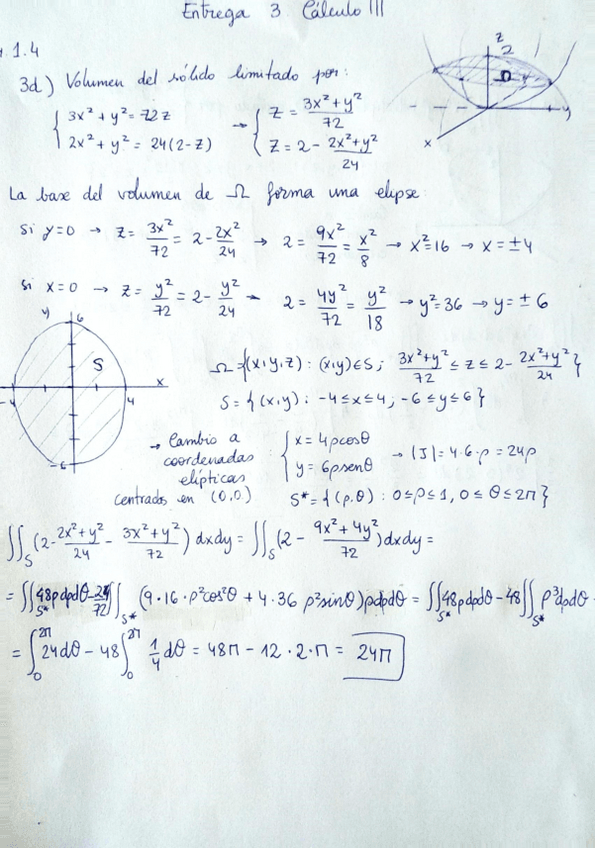 Entrega 3 Cálculo III
1.4
3d) Volumen del sólido limitado por:
z
2
Ω
y
x
{ 3x² + y² = 72z
2x² + y² = 24(2-z)
→ { z = (3x² + y²)/72
z = 2 - (2x² + y²)/24
La base del volumen de Ω forma una elipse
Si y=0 → z = 3x²/72 = 2 - 2x²/24 → 2 = 9x²/72 = x²/8 → x²=16 → x = ±4
si x=0 → z = y²/72 = 2 - y²/24 - 2 = 4y²/72 = y²/18 → y²=36 → y = ±6
y
6
S
x
-4
4
-6
Ω = {(x,y,z) : (x,y)∈S; (3x²+y²)/72 ≤ z ≤ 2 - (2x²+y²)/24}
S = {(x,y) : -4≤x≤4; -6≤y≤6}
→ Cambio a
coordenadas
elípticas
centrados en (0,0)
{ x = 4ρcosθ
y = 6ρsenθ
→ |J| = 4·6·ρ = 24ρ
S* = {(ρ,θ) : 0≤ρ≤1, 0≤θ≤2π}
∬_S (2 - (2x²+y²)/24 - (3x²+y²)/72) dxdy = ∬_S (2 - (9x²+4y²)/72) dxdy =
= ∬_S* 48ρdρdθ - 24/72 ∬_S* (9·16·ρ²cos²θ + 4·36 ρ²sinθ)ρdρdθ = ∬_S* 48ρdρdθ - 48∬_S* ρ³dρdθ =
= ∫_0^2π 24dθ - 48∫_0^2π 1/4 dθ = 48π - 12·2·π = 24π